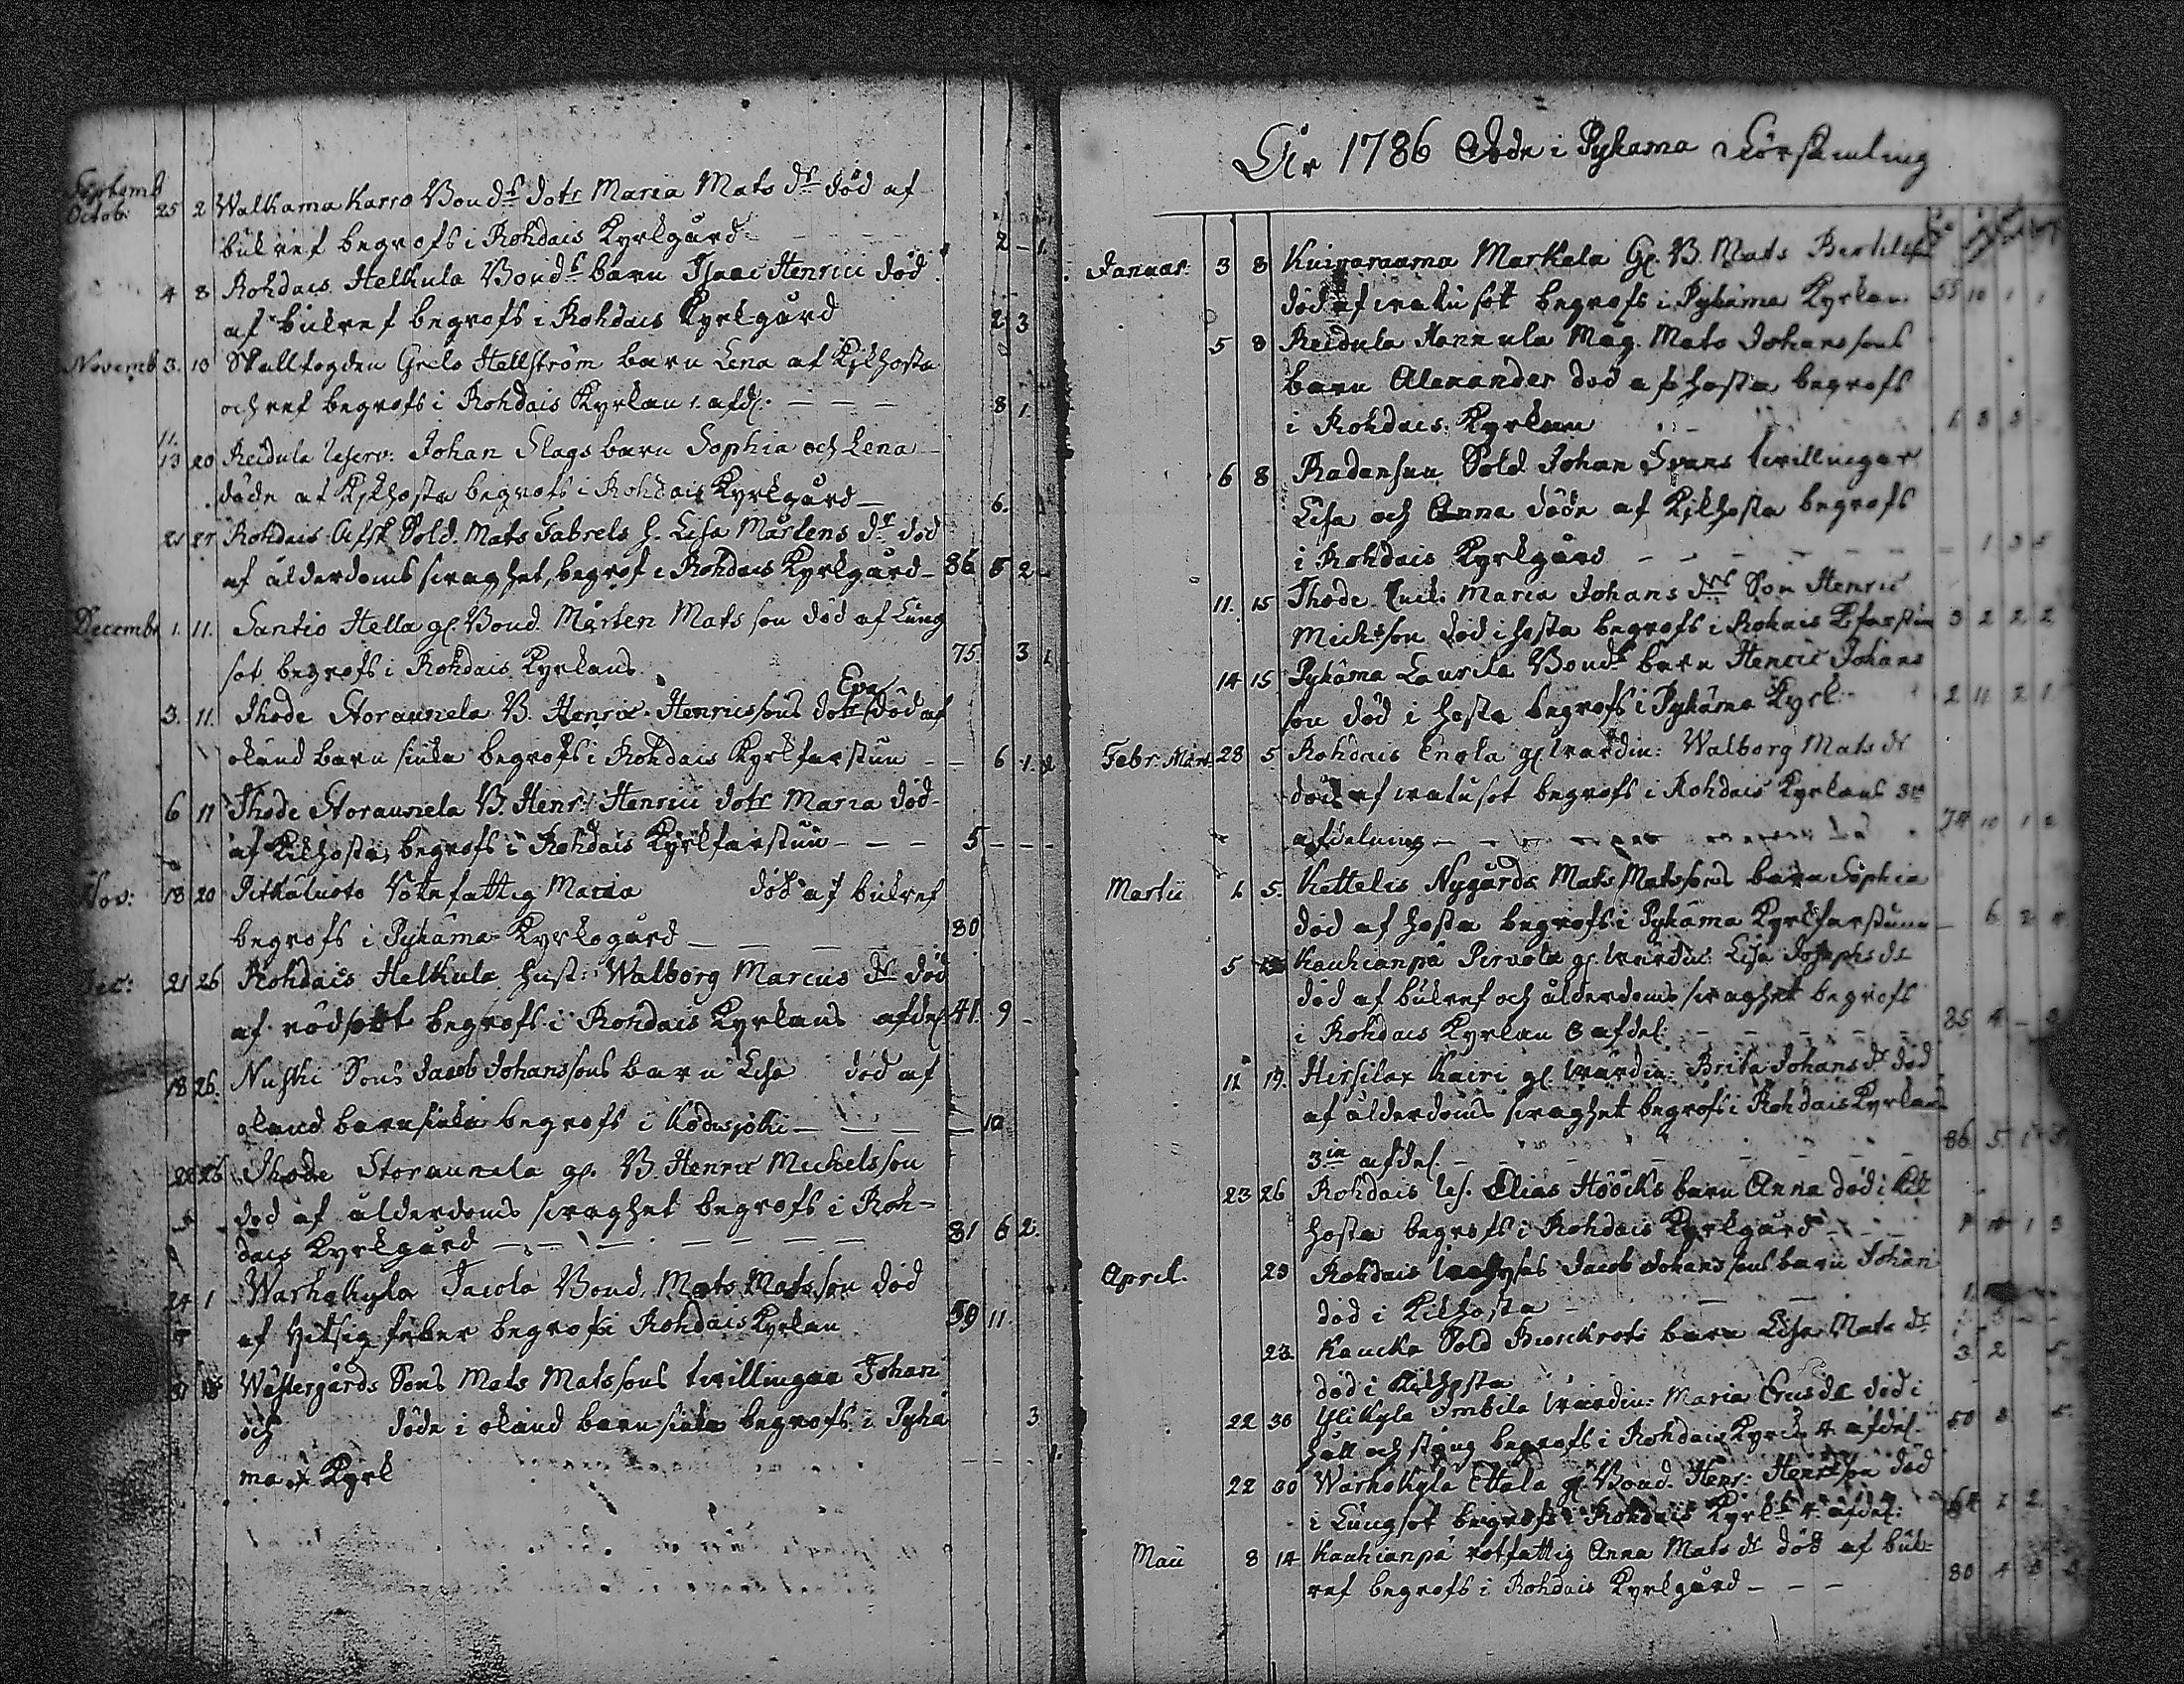 Septemb
Octob: 25 2 Walkama Karro Bonds dotr Maria Mats dr död af
bukref begrofs i Rohdais Kyrkgård 2 - 1
4 8 Rohdais Helkula Bonds barn Isaac Henrici död
af bukref begrofs i Rohdais Kyrkgård 2 3
Novemb 3. 13 Skallfogden Grels Hellström barn Lena af Kikhosta
och ref begrofs i Rohdais Kyrkan 1. afd. 8 1.
11.
13 20 Reidula Reserv: Johan Slags barn Sophia och Lena
döde af Kikhosta begrofs i Rohdais Kyrkgård 6.
21 27 Rohdais Afsk Sold. Mats Gabrels h. Lisa Mårtens dr död
af ålderdoms svaghet, begrof i Rohdais Kyrkgård 86 5 2
Decembr 1. 11. Santio Hella gl. Bond. Mårten Mats son död af Lung
sot begrofs i Rohdais Kyrkans 75. 3 1
Eva
3. 11. Ihode Storaunela B. Henric Henricssons dotr död af
okänd barn siuka begrofs i Rohdais Kyrkfarstuu - 6 1. 2
6 11 Ihode Storaunela B. Henr: Henrici dotr Maria död
af Kikhosta begrofs i Rohdais Kyrkfarstuu 5 - - -
Nov: 18 20 Pitkäluoto Rotefattig Maria död af bukref
begrofs i Pyhäma Kyrkogård 80
Dec: 21 26 Rohdais Helkula hust: Walborg Marcus dr död
af rödsott begrofs i Rohdais Kyrkans afdel 41. 9 -
18 26. Nuhki Sons Jacob Johanssons barn Lisa död af
okänd barnsiuka begrofs i Kodisjoki - 10
26 Ihode Storaunela gl. B. Henric Michelsson
död af ålderdoms svaghet begrofs i Roh-
dais Kyrkgård 81 6 2.
24 1 Warhokyla Jacola Bond. Mats Matsson död
af Hitsig feber begrofs i Rohdais Kyrkan 59 11.
31 Wästergårds Sons Mats Matssons tvillingar Johan
och döde i okänd barnsiuka begrofs i Pyhä 3
ma Kyrk

År 1786 Döde i Pyhama Församling
Januar: 3 8 Kuivaraama Markala Gl. B. Mats Bertilss
död af vatusot begrofs i Pyhäma Kyrkan 55 10 1 1
5 8 Reidula Hannula Mag. Mats Johanssons
barn Alexander död af hosta begrofs
i Rohdais Kyrkan 1 8 3 -
6 8 Radansuu Sold Johan Svans tvillingar
Lisa och Anna döde af Kikhosta begrofs
i Rohdais Kyrkgård - 1 3 5
11. 15 Ihode Maria Johans drs Son Henric
Michsson död i hosta begrofs i Rohdais Kfarstuu 3 2 2 2
14 15 Pyhäma Laurila Bonds barn Henric Johans
son död i hosta begrofs i Pyhäma Kyrk: 2 11 2 1
Febr. Mart 28 5. Rohdais Enola gl. wärdin: Walborg Mats dr
död af vatusot begrofs i Rohdais Kyrkans 3
afdelning 74 10 1
Martii 1 5. Kettelis Nygårds Mats Matssons barn Sophia
död af hosta begrofs i Pyhäma Kyrkfarstuu - 6 2
5 Kauhianpä Pirvola gl. wärdin: Lisa Josephs dr
död af bukref och ålderdoms svaghet begrofs
i Rohdais Kyrkan 3 afdel: 85 4 -
11 19. Hirsilax Kairi gl. wärdin: Brita Johans dr död
af ålderdoms svaghet begrofs i Rohdais Kyrkans
3 afdel. 86 5 1
23 26 Rohdais les. Elias Hööcks barn Anna död i Kik
hosta begrofs i Rohdais Kyrkgård 1 3
April. 23 Rohdais Jacob Johanssons barn Johan
död i Kikhosta
23. Kaucka Sold Biorckrots barn Lisa Mats dr
död i Kikhosta 3 2 5
22 30 Ylikyla Imbila wärdin: Maria Erics dr död i
håll och styng begrofs i Rohdais Kyrk 4. afdel. 50 8 5
22 30 Warhokyla Ettala gl. Bond. Henr: Henrsson död
i Lungsot begrofs i Rohdais Kyrk 4. afdel: 64 2
Maii 8 14 Kauhianpä rotfattig Anna Mats dr död af buk-
ref begrofs i Rohdais Kyrkgård - - - 80 4